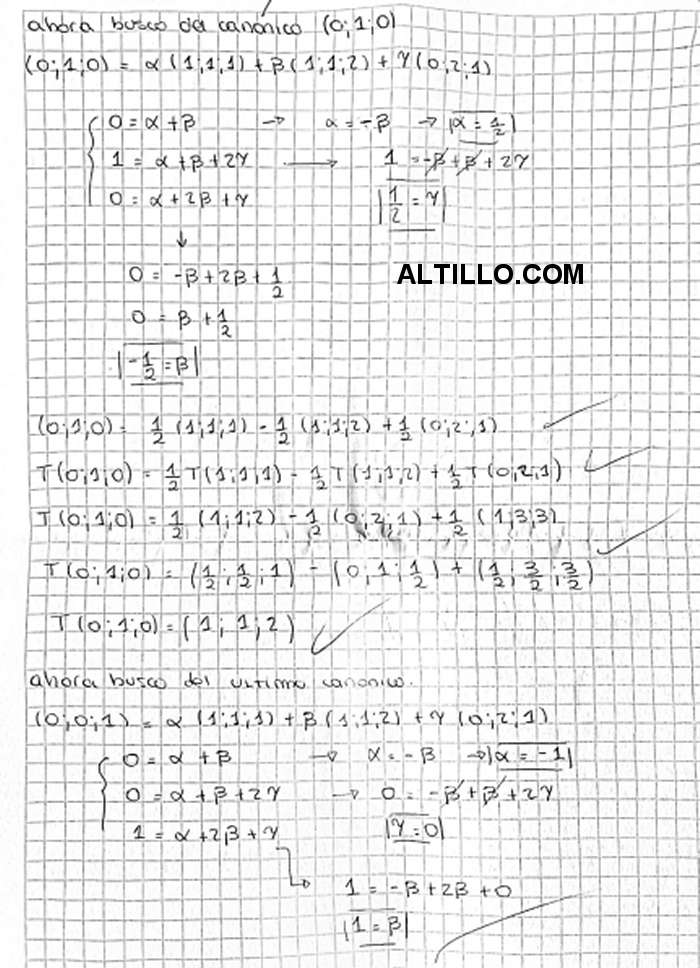 ahora busco del canónico (0;1;0)
(0;1;0) = α(1;1;1) + β(1;1;2) + γ(0;2;1)
0 = α + β → α = -β → |α = 1/2|
1 = α + β + 2γ → 1 = -β + β + 2γ
0 = α + 2β + γ |1/2 = γ|
↓
0 = -β + 2β + 1/2
ALTILLO.COM
0 = β + 1/2
|-1/2 = β|
(0;1;0) = 1/2 (1;1;1) - 1/2 (1;1;2) + 1/2 (0;2;1)
T(0;1;0) = 1/2 T(1;1;1) - 1/2 T(1;1;2) + 1/2 T(0;2;1)
T(0;1;0) = 1/2 (1;1;2) - 1/2 (0;2;1) + 1/2 (1;3;3)
T(0;1;0) = (1/2;1/2;1) - (0;1;1/2) + (1/2;3/2;3/2)
T(0;1;0) = (1;1;2)
ahora busco del ultimo canonico.
(0;0;1) = α(1;1;1) + β(1;1;2) + γ(0;2;1)
0 = α + β → α = -β → |α = -1|
0 = α + β + 2γ → 0 = -β + β + 2γ
1 = α + 2β + γ |γ = 0|
→ 1 = -β + 2β + 0
|1 = β|